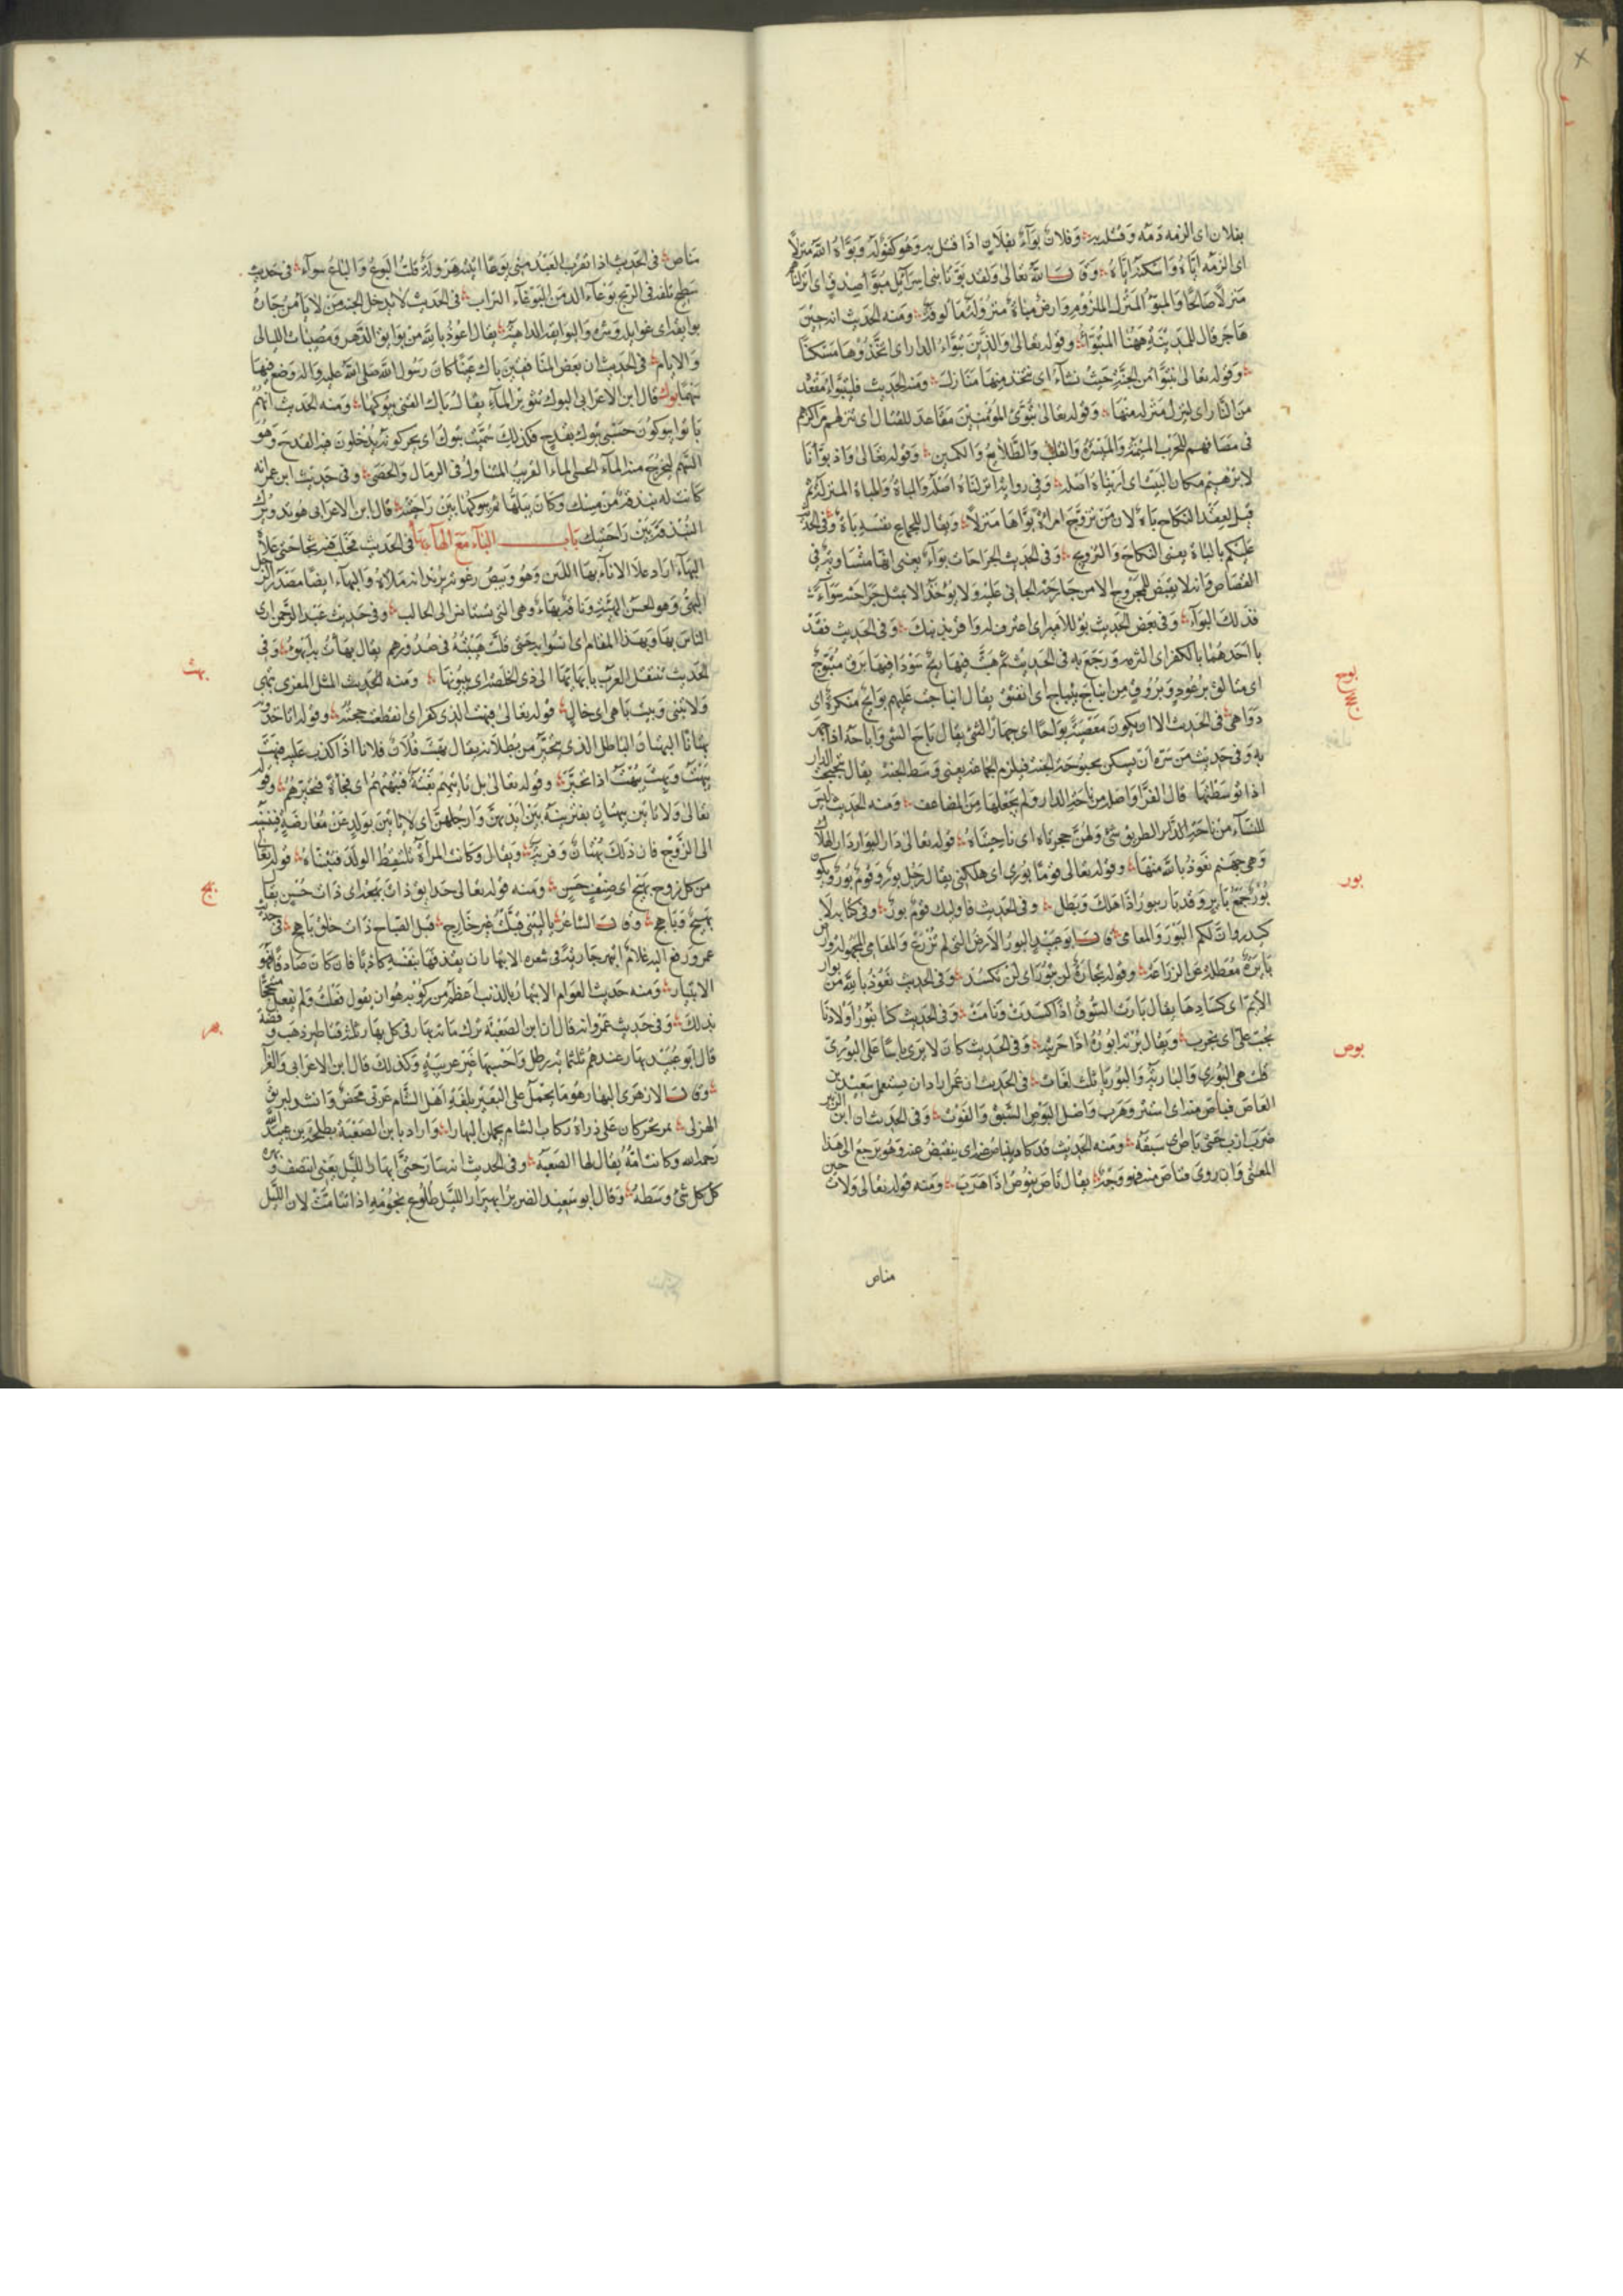 بفلان اى الزمه دمه وقتل به وفلان بوآء بفلان اذا قتل به وهو كقوله وبوّاه الله منزلاً
اى الزمه اياه واسكنه اياه وقال الله تعالى ولقد بوّانا بنى اسرآئيل مبوّأ صدق اى انزلناهم
منزلا صالحا والمبوّأ المنزل الملزوم وارض مباة منزولة مألوفة ومنه الحديث انه حين
هاجر قال للمدينة ههنا المتبوّأ وقوله تعالى والذين تبوّؤا الدار اى اتخذوها مسكنا
وقوله تعالى نتبوّأ من الجنة حيث نشآء اى نتخذ منها منازل ومنه الحديث فليتبوأ مقعده
من النار اى لينزل منزله منها وقوله تعالى تبوّئ المؤمنين مقاعد للقتال اى تنزلهم مراكزهم
فى مصافهم للحرب الميمنة والميسرة والقلب والطلايع والكمين وقوله تعالى واذ بوّأنا
لابرهيم مكان البيت اى اريناه اصله وفى رواية انزلناه اصله والباة والمباة المنزل ثم
قيل لعقد النكاح باة لان من تزوج امراة بوّاها منزلا ويقال للجماع نفسه باة وفى الحديث
عليكم بالباة يعنى النكاح والتزويج وفى الحديث الجراحات بوآء يعنى انها متساوية فى
القصاص وانه لا يقتص للمجروح الا من جارحه الجانى عليه ولا يؤخذ الا بمثل جراحته سوآء
فذلك البوآء وفى بعض الحديث بؤ للامير اى اعترف له واقر بذنبك وفى الحديث فقد
باء احدهما بالكفر اى التزمه ورجع به فى الحديث ثم هبت فيها ريح سودا فيها برق متبوّج
اى متالق برعود وبروق من انباج ينباج اى انفتق يقال انباجت عليهم بوايج منكرة اى
دواهى فى الحديث الا ان يكون معصية بواحا اى جهارا لشى يقال باح الشى واباحه اذا جهر
به وفى حديث من سره ان يسكن بحبوحة الجنة فيلزم الجماعة يعنى وسط الجنة يقال تبحبح الدار
اذا توسطتها قال الفرّا واصله من باحة الدار ولم يجعلها من المضاعف ومنه الحديث ليس
للنسآء من باحة الدار الطريق شى ولهن حجرتاه اى ناحيتاه قوله تعالى دار البوار دار الهلاك
وهى جهنم نعوذ بالله منها وقوله تعالى قوما بورا اى هلكى يقال رجل بور وقوم بور ويكون
بور جمع باير وقد بار يبور اذا هلك وبطل وفى الحديث فاوليك قوم بور وفى كتابه
كيدر وان لكم البور والمعامى قال ابو عبيد البور الارض التى لم تزرع والمعامى المجهولة
بايرة معطلة عن الزراعة وقوله تجارة لن تبور اى لن تكسد وفى الحديث نعوذ بالله من بوار
الايم اى كسادها يقال بارت السوق اذا كسدت ونامت وفى الحديث كنا نبور اولادنا
بحب على اى نجرب ويقال برته ابوره اذا جربته وفى الحديث كان لا يرى باسا على البورى
قلت هى البورى والبارية والبوريا ثلث لغات فى الحديث ان عمر اراد ان يستعمل سعيد بن
العاص فباص منه اى استتر وهرب واصل البوص السبق والفوت وفى الحديث ان ابن الزبير
ضرب ازب حتى باص اى سبقه ومنه الحديث
المعنى وان روى فناص منه فهو وجه يقال ناص ينوص اذا هرب ومنه قوله تعالى ولات حين
مناص
بوج
بحح
بور
بوص
مناص فى الحديث اذا تقرب العبد منى بوعا اتيته هرولة قلت البوع والباع سوآء فى حديث
سطيح تلفه فى الريح بوغآء الدمن البوغآء التراب فى الحديث لا يدخل الجنة من لا يأمن جاره
بوايقه اى غوايله وشره والبوايقة الداهية يقال اعوذ بالله من بوايق الدهر ومصيبات الليالى
والايام فى الحديث ان بعض المنافقين باك عينا كان رسول الله صلى الله عليه واله وضع فيها
سهما بوك قال ابن الاعرابى البوك تثوير المآء يقال باك القنى يبوكها ومنه الحديث انهم
باتوا يبوكون حسى تبوك بقدح فكذلك سميت تبوك اى يحركونه يدخلون فيه القدح وهو
السهم ليخرج منه المآء الحسى الماء القريب المتناول فى الرمال والحصى وفى حديث ابن عمر انه
كانت له بندقة من مسك وكان يبلها ثم يبوكها بين راحتيه قال ابن الاعرابى هو تدويرك
البندقة بين راحتيك باب البآء مع الهآء بها فى الحديث فحلب فيه ثجا حتى علاه
البهآء اراد علا الانآء بهآ اللبن وهو وبيص رغوته يريد انه ملاه والبهآء ايضا مصدر الرجل
البهى وهو الحسن الهيئة وناقة بهآء وهى التى تستانس الى الحالب وفى حديث عبد الرحمن ارى
الناس بهاو بهذا المقام اى انسوا به حتى قلت هيبته فى صدورهم يقال بهأت به ابهوء وفى
الحديث تنتقل العرب بابهآيها الى ذى الخلصة اى بيوتها ومنه الحديث المثل المعزى تبهى
ولا تبنى وبيت باهى اى خال قوله تعالى فبهت الذى كفر اى انقطعت حجته وقوله اتاخذونه
بهتانا البهتان الباطل الذى يتحير من بطلانه يقال بهت فلان فلانا اذا كذب عليه فبهت
يبهت وبهت يبهت اذا تحير وقوله تعالى بل تاتيهم بغتة فتبهتهم اى فجاة فتحيرهم وقوله
تعالى ولا ياتين ببهتان يفترينه بين ايديهن وارجلهن اى لا ياتين بولد عن معارضة فينسبنه
الى الزوج فان ذلك بهتان وفرية ويقال وكانت المرأة تلتقط الولد فتبناه قوله تعالى
من كل زوج بهيج اى صنف حسن ومنه قوله تعالى حدايق ذات بهجة اى ذات حسن يقال
بهيج وباهج وقال الشاعر يا ليتنى قبلت غير خارج قبل الصباح ذات خلق باهج فى حديث
عمر ورفع اليه غلام ابتهر جارية فى شعره الابتهار ان يقذفها بنفسه كاذبا فان كان صادقا فهو
الابتيار ومنه حديث العوام الابتهار بالذنب اعظم من ركوبه هو ان يقول فعلت ولم يفعل متبجحا
بذلك وفى حديث عمرو انه قال ان ابن الصعبة ترك مائة بهار فى كل بهار ثلثة قناطير ذهب وفضة
قال ابو عبيد بهار عندهم ثلثماية رطل واحسبها غير عربية وكذلك قال ابن الاعرابى والفرآء
وقال الازهرى البهار هو ما يحمل على البعير بلغة اهل الشام عربى محض وانشد لبريق
الهذلى بمرتجز كان على ذراه ركاب الشام يحملن البهارا واراد بابن الصعبة طلحة بن عبيد الله
رحمه الله وكانت امه يقال لها الصعبة وفى الحديث انه سار حتى ابهار الليل يعنى انتصف وبهرة
كل شى وسطه وقال ابو سعيد الضرير ابهيرار الليل طلوع نجومه اذا تتامت لان الليل
بهت
بهج
بهر